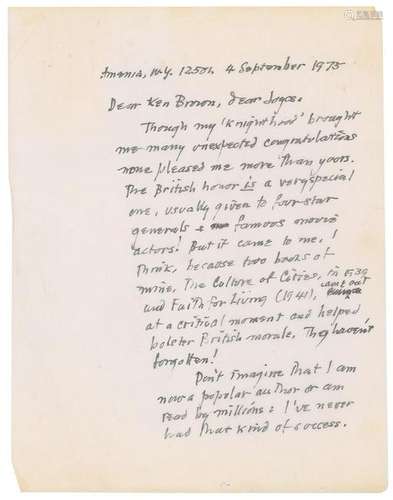 Amenia, N.Y. 12501. 4 September 1975
Dear Ken Brown, dear Joyce.
Though my 'Knighthood' brought
me many unexpected congratulations
none pleased me more than yours.
The British honor is a very special
one, usually given to four-star
generals & famous movie
actors! But it came to me, I
think, because two books of
mine, The Culture of Cities, in 1939
and Faith for Living (1941), came out
at a critical moment and helped
bolster British morale. They haven't
forgotten!
Don't imagine that I am
now a popular author or am
read by millions: I've never
had that kind of success.